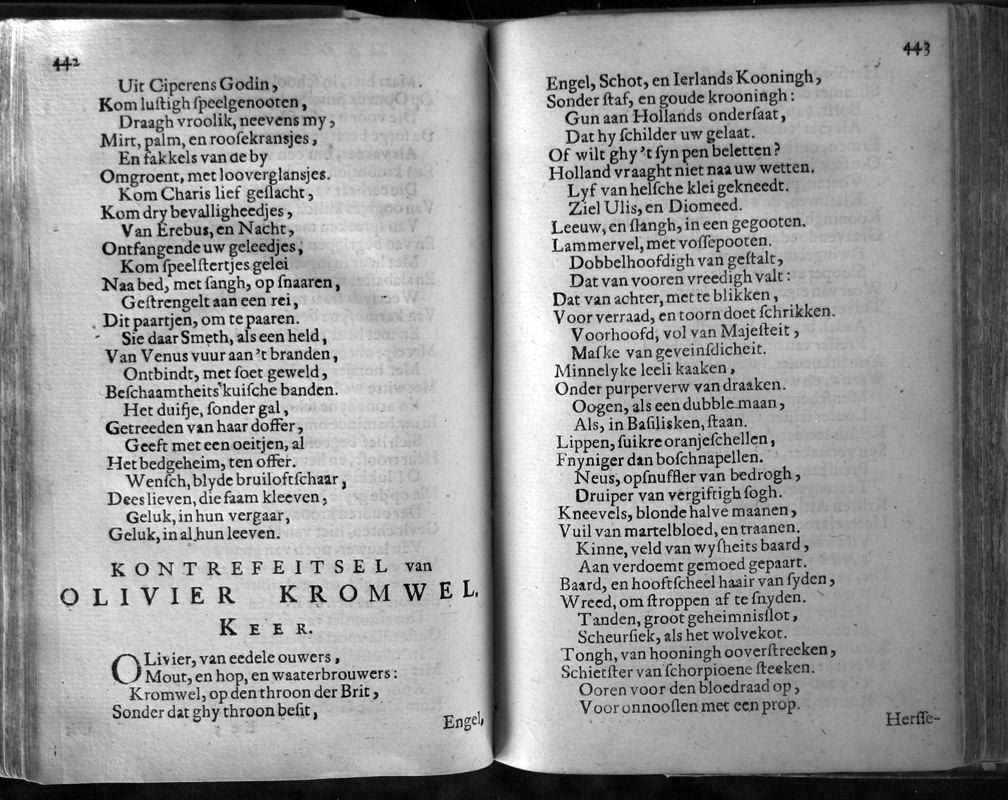 442
Uit Ciperens Godin,
Kom luſtigh ſpeelgenooten,
Draagh vroolik, neevens my,
Mirt, palm, en rooſekransjes,
En fakkels van de by
Omgroent, met looverglansjes.
Kom Charis lief geſlacht,
Kom dry bevalligheedjes,
Van Erebus, en Nacht,
Ontfangende uw geleedjes;
Kom ſpeelſtertjes gelei
Naa bed, met ſangh, op ſnaaren,
Geſtrengelt aan een rei,
Dit paartjen, om te paaren.
Sie daar Smeth, als een held,
Van Venus vuur aan't branden,
Ontbindt, met ſoet geweld,
Beſchaamtheits kuiſche banden.
Het duifje, ſonder gal,
Getreeden van haar doffer,
Geeft met een oeitjen, al
Het bedgeheim, ten offer.
Wenſch, blyde bruiloftſchaar,
Dees lieven, die ſaam kleeven,
Geluk, in hun vergaar,
Geluk, in al hun leeven.
KONTREFEITSEL van
OLIVIER KROMWEL.
KEER.
OLivier, van eedele ouwers,
Mout, en hop, en waaterbrouwers:
Kromwel, op den throon der Brit,
Sonder dat ghy throon beſit,
Engel,
443
Engel, Schot, en Ierlands Kooningh,
Sonder ſtaf, en goude krooningh:
Gun aan Hollands onderſaat,
Dat hy ſchilder uw gelaat.
Of wilt ghy 't ſyn pen beletten?
Holland vraaght niet naa uw wetten.
Lyf van helſche klei gekneedt.
Ziel Ulis, en Diomeed.
Leeuw, en ſlangh, in een gegooten.
Lammervel, met voſſepooten.
Dobbelhoofdigh van geſtalt,
Dat van vooren vreedigh valt:
Dat van achter, met te blikken,
Voor verraad, en toorn doet ſchrikken.
Voorhoofd, vol van Majeſteit,
Maſke van geveinſdicheit.
Minnelyke leeli kaaken,
Onder purperverw van draaken.
Oogen, als een dubble maan,
Als, in Baſilisken, ſtaan.
Lippen, ſuikre oranjeſchellen,
Fnyniger dan boſchnapellen.
Neus, opſnuffler van bedrogh,
Druiper van vergiftigh ſogh.
Kneevels, blonde halve maanen,
Vuil van martelbloed, en traanen.
Kinne, veld van wyſheits baard,
Aan verdoemt gemoed gepaart.
Baard, en hooftſcheel haair van ſyden,
Wreed, om ſtroppen af te ſnyden.
Tanden, groot geheimnisſlot,
Scheurſiek, als het wolvekot.
Tongh, van hooningh ooverſtreeken,
Schietſter van ſchorpioene ſteeken.
Ooren voor den bloedraad op,
Voor onnooſlen met een prop.
Herſſe-